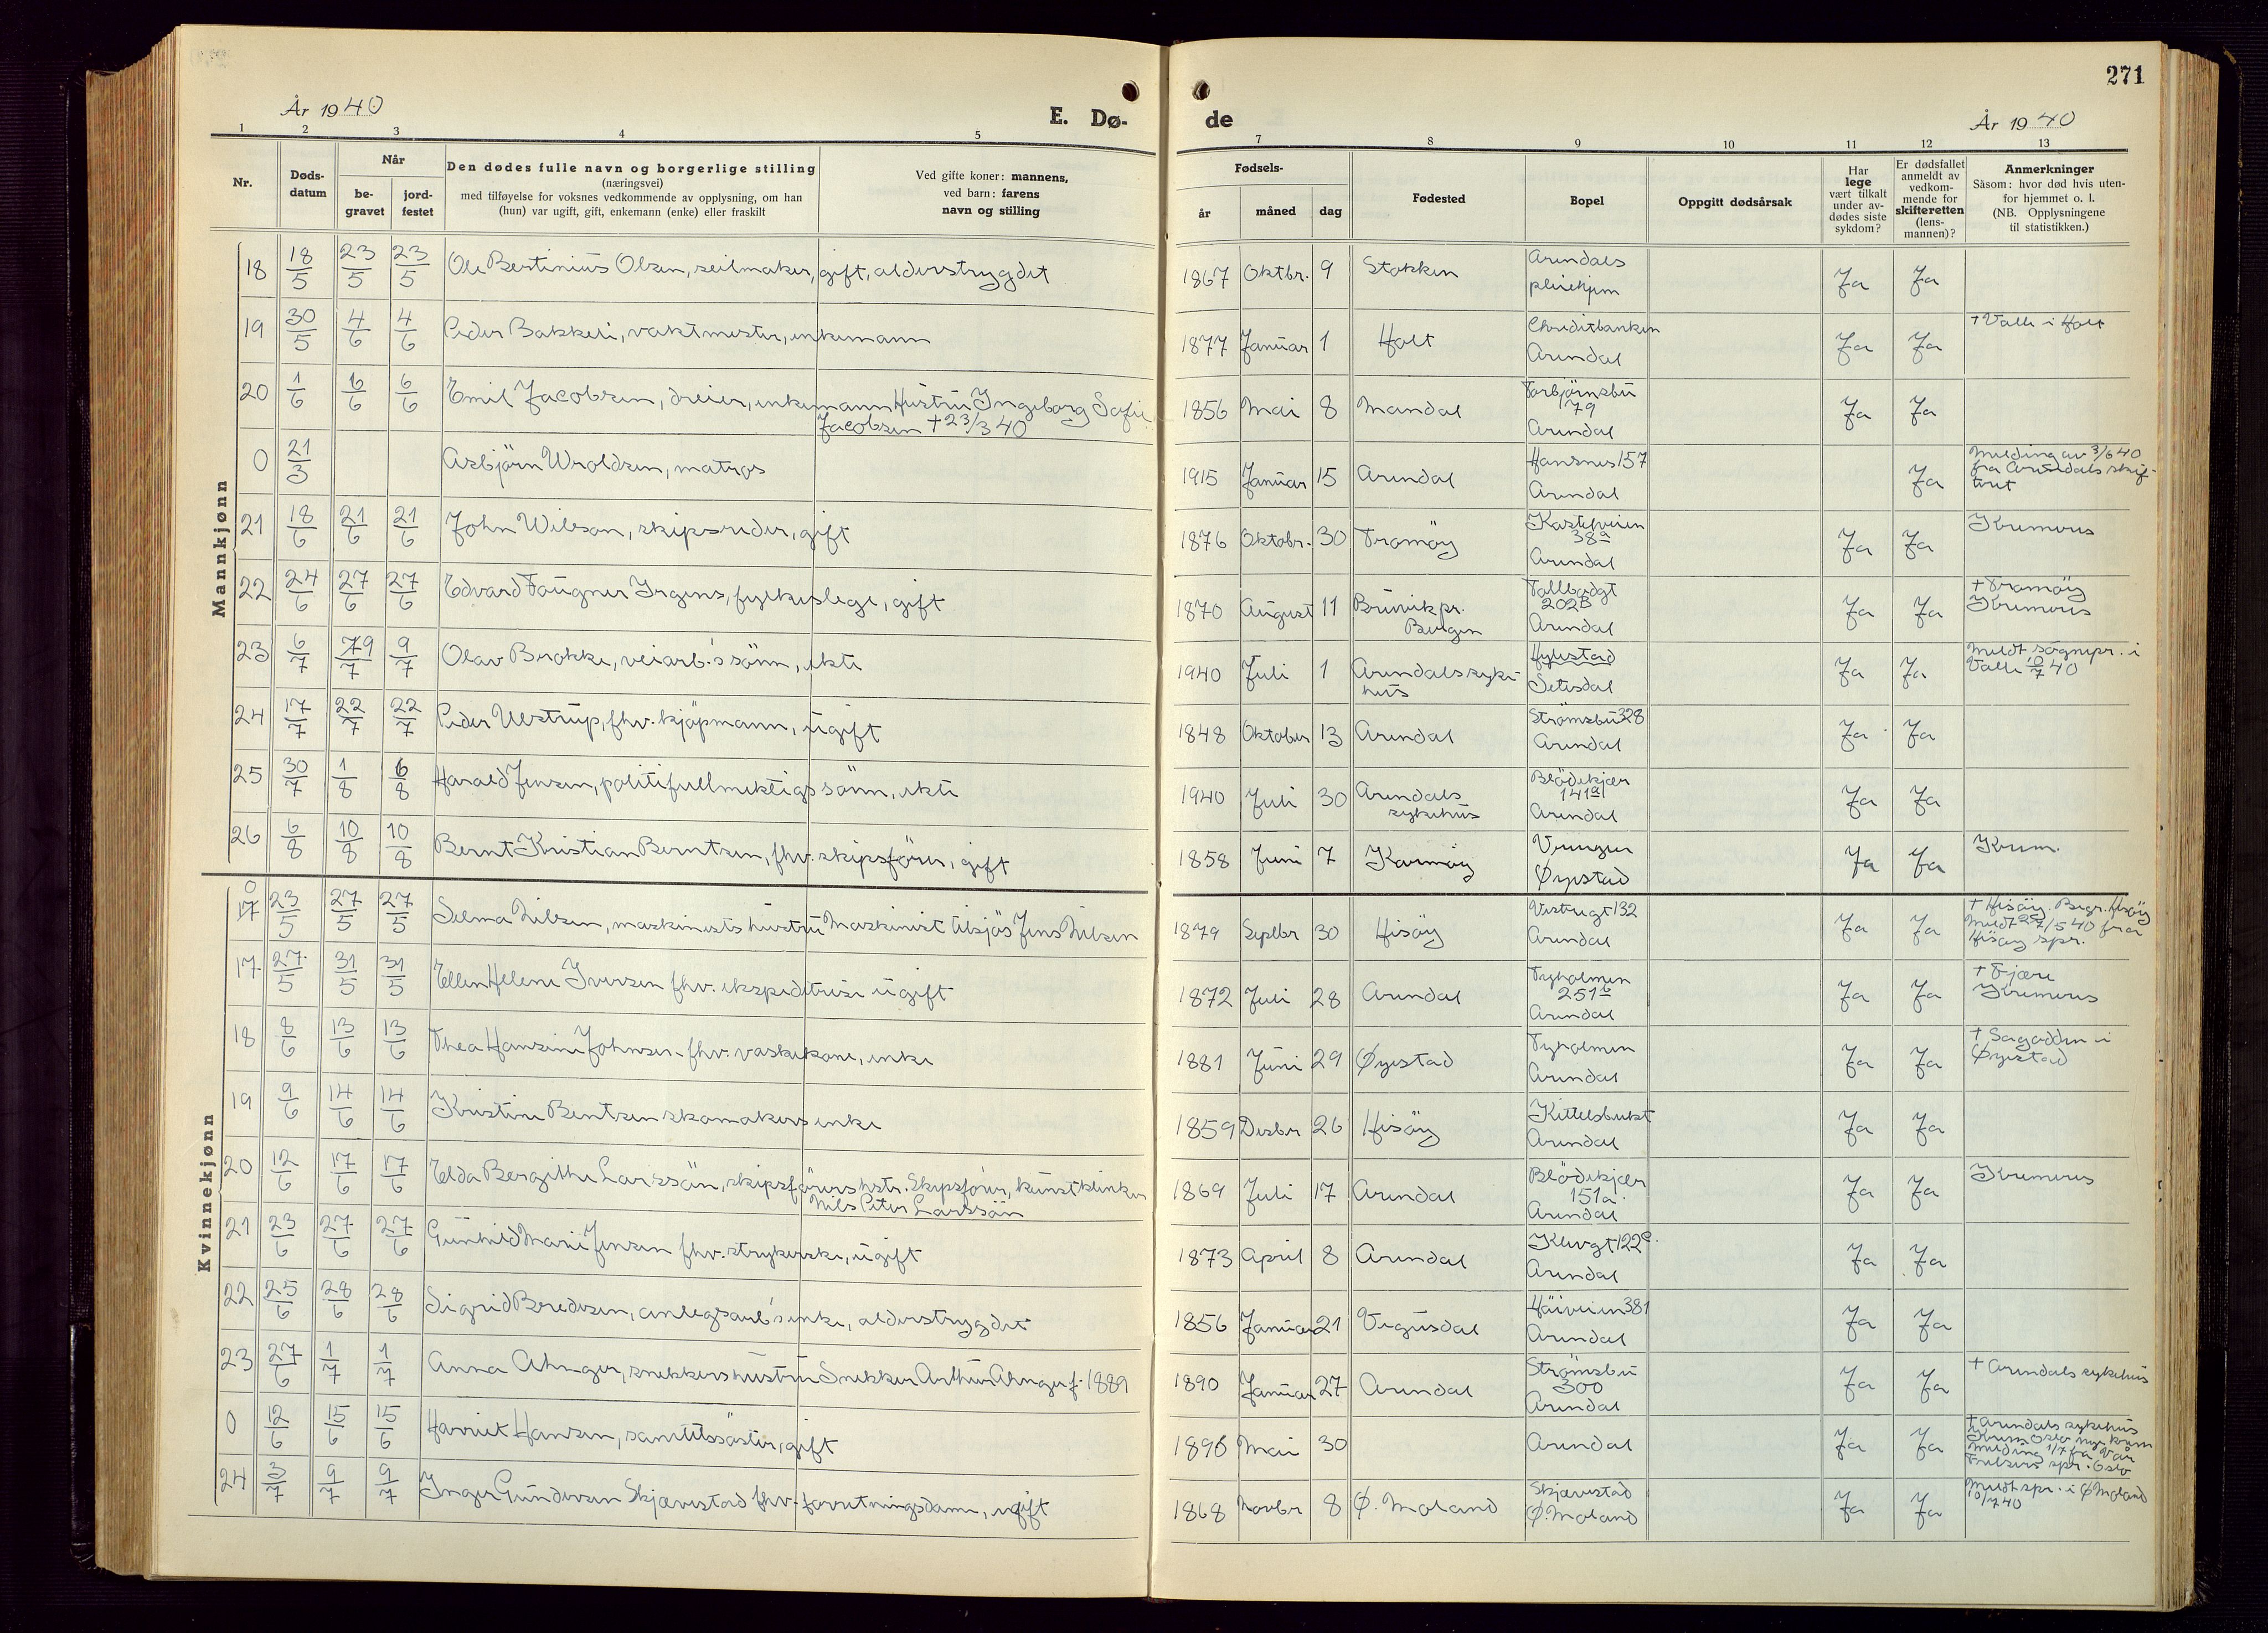 271
År 1940
E. Dø-
de
År 1940
1 2 3 4 5 7 8 9 10 11 12 13
Nr.
Døds-
datum
Når
be-
gravet
jord-
festet
Den dødes fulle navn og borgerlige stilling
(næringsvei)
med tilføyelse for voksnes vedkommende av opplysning, om han
(hun) var ugift, gift, enkemann (enke) eller fraskilt
Ved gifte koner: mannens,
ved barn: farens
navn og stilling
Fødsels-
år måned dag
Fødested
Bopel
Oppgitt dødsårsak
Har
lege
vært tilkalt
under av-
dødes siste
sykdom?
Er dødsfallet
anmeldt av
vedkom-
mende for
skifteretten
(lens-
mannen)?
Anmerkninger
Såsom: hvor død hvis uten-
for hjemmet o. l.
(NB. Opplysningene
til statistikken.)
Mannkjønn
18 18/5 23/5 23/5 Ole Bertinius Olsen, seilmaker, gift, alderstrygdet 1867 Oktbr. 9 Stokken Arendals
pleiehjem Ja Ja
19 30/5 4/6 4/6 Peder Bakkeli, vaktmester, enkemann 1877 Januar 1 Holt Creditbanken
Arendal Ja Ja † Valle i Holt
20 1/6 6/6 6/6 Emil Jacobsen, dreier, enkemann Hustru Ingeborg Sofie
Jacobsen † 23/3 40 1856 Mai 8 Mandal Torbjørnsbu
79
Arendal Ja Ja
0 21/3 Asbjörn Wroldsen, matros 1915 Januar 15 Arendal Hansnes 157
Arendal Ja Melding av 3/6 40
fra Arendals skif-
terett
21 18/6 21/6 21/6 John Wilson, skipsreder, gift 1876 Oktobr. 30 Tromöy Kastelveien
38a
Arendal Ja Ja Kremeres
22 24/6 27/6 27/6 Edvard Faugner Irgens, fylkeslege, gift 1870 August 11 Bruvik pr.
Bergen Tollbodgt
202B
Arendal Ja Ja † Tromöy
Kremeres
23 6/7 9/7 9/7 Olav Brokke, veiarb.'s sönn, ekte 1940 Juli 1 Arendals syke-
hus Hylestad
Setesdal Ja Ja Meldt sognepr. i
Valle 10/7 40
24 17/7 22/7 22/7 Peder Uestrup, fhv. kjöpmann, ugift 1848 Oktober 13 Arendal Strömsbu 328
Arendal Ja Ja
25 30/7 1/8 6/8 Harald Jensen, politifullmektigs sönn, ekte 1940 Juli 30 Arendals
sykehus Blödekjær
141a
Arendal Ja Ja
26 6/8 10/8 10/8 Bernt Kristian Berntsen, fhv. skipsförer, gift 1858 Juni 7 Karmöy Vrengen
Øyestad Ja Ja Krem.
Kvinnekjønn
0 17 23/5 27/5 27/5 Selma Nilsen, maskinists hustru Maskinist tilsjös Jens Nilsen 1879 Septbr 30 Hisöy Vestregt 132
Arendal Ja Ja † Hisöy. Begr. Hisöy
Meldt 27/5 40 fra
Hisöy spr.
17 27/5 31/5 31/5 Ellen Helene Iversen fhv. ekspeditrise ugift 1872 Juli 28 Arendal Tyholmen
251b
Arendal Ja Ja † Fjære
Kremeres
18 8/6 13/6 13/6 Thea Hansine Johnsen fhv. vaskekone, enke 1881 Juni 29 Øyestad Tyholmen
Arendal Ja Ja † Sagodden i
Øyestad
19 9/6 14/6 14/6 Kristine Bentsen skomakers enke 1859 Desbr 26 Hisöy Kittelsbukt
Arendal Ja Ja
20 12/6 17/6 17/6 Elda Bergithe Larssän, skipsförers hstr. Skipsförer, kunstklinker
Nils Peter Larssän 1869 Juli 17 Arendal Blödekjær
151a
Arendal Ja Ja Kremeres
21 23/6 27/6 27/6 Gunhild Marie Jensen fhv. strykerske, ugift 1873 April 8 Arendal Klevgt 122c
Arendal Ja Ja
22 25/6 28/6 28/6 Sigrid Bredesen, anlegsarb's enke, alderstrygdet 1856 Januar 21 Vegusdal Höiveien 381
Arendal Ja Ja
23 27/6 1/7 1/7 Anna Ahnger, snekkers hustru Snekker Arthur Ahnger f. 1889 1890 Januar 27 Arendal Strömsbu
300
Arendal Ja Ja † Arendals sykehus
0 12/6 15/6 15/6 Harriet Hansen, sanitetssöster, gift 1896 Mai 30 Arendal Ja Ja † Arendals sykehus
Krem Oslo nye krem
Melding 1/7 fra Vår
Frelsers spr. Oslo
24 3/7 9/7 9/7 Inger Gundersen Skjævestad fhv. forretningsdame, ugift 1868 Novbr 8 Ø. Moland Skjævestad
Ø. Moland Ja Ja Meldt spr. i Ø Moland
10/7 40